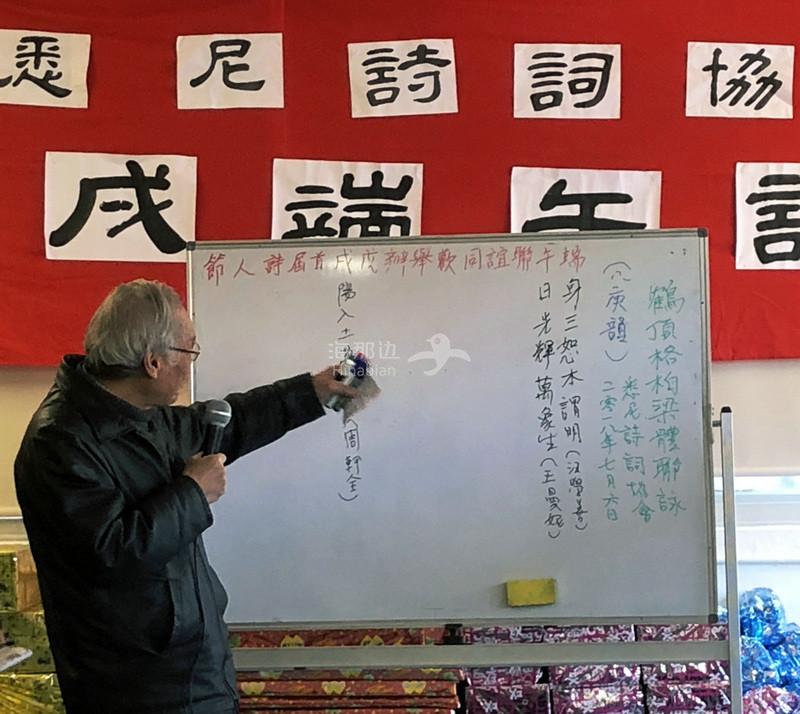 悉尼詩詞協
戌端午詩
節人詩屆首戌戊辦舉歡同誼聯午端
鶴頂格柏梁體聯詠
悉尼詩詞協會
二零一八年七月六日
(八庚韻)
身三恕本謂明(汪學善)
日光輝萬象生(王曼妮)
陽入土
周幹全)
海那边
Hinabian